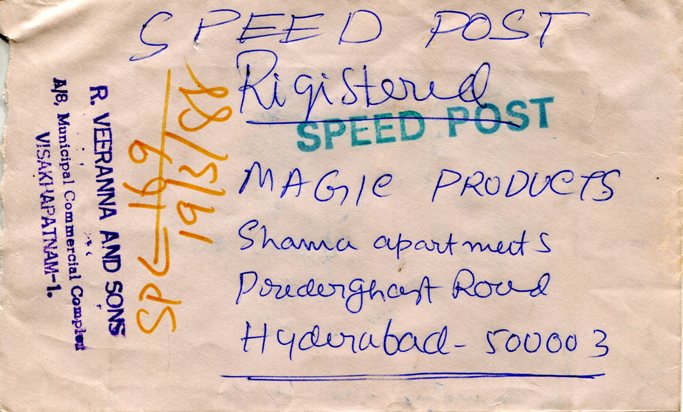 SPEED POST
Rigistered
SPEED POST
MAGIC PRODUCTS
Shama apartments
Road
Hyderabad - 500003
R. VEERANNA AND SONS
A/8, Municipal Commercial Complex
VISAKHAPATNAM-1.